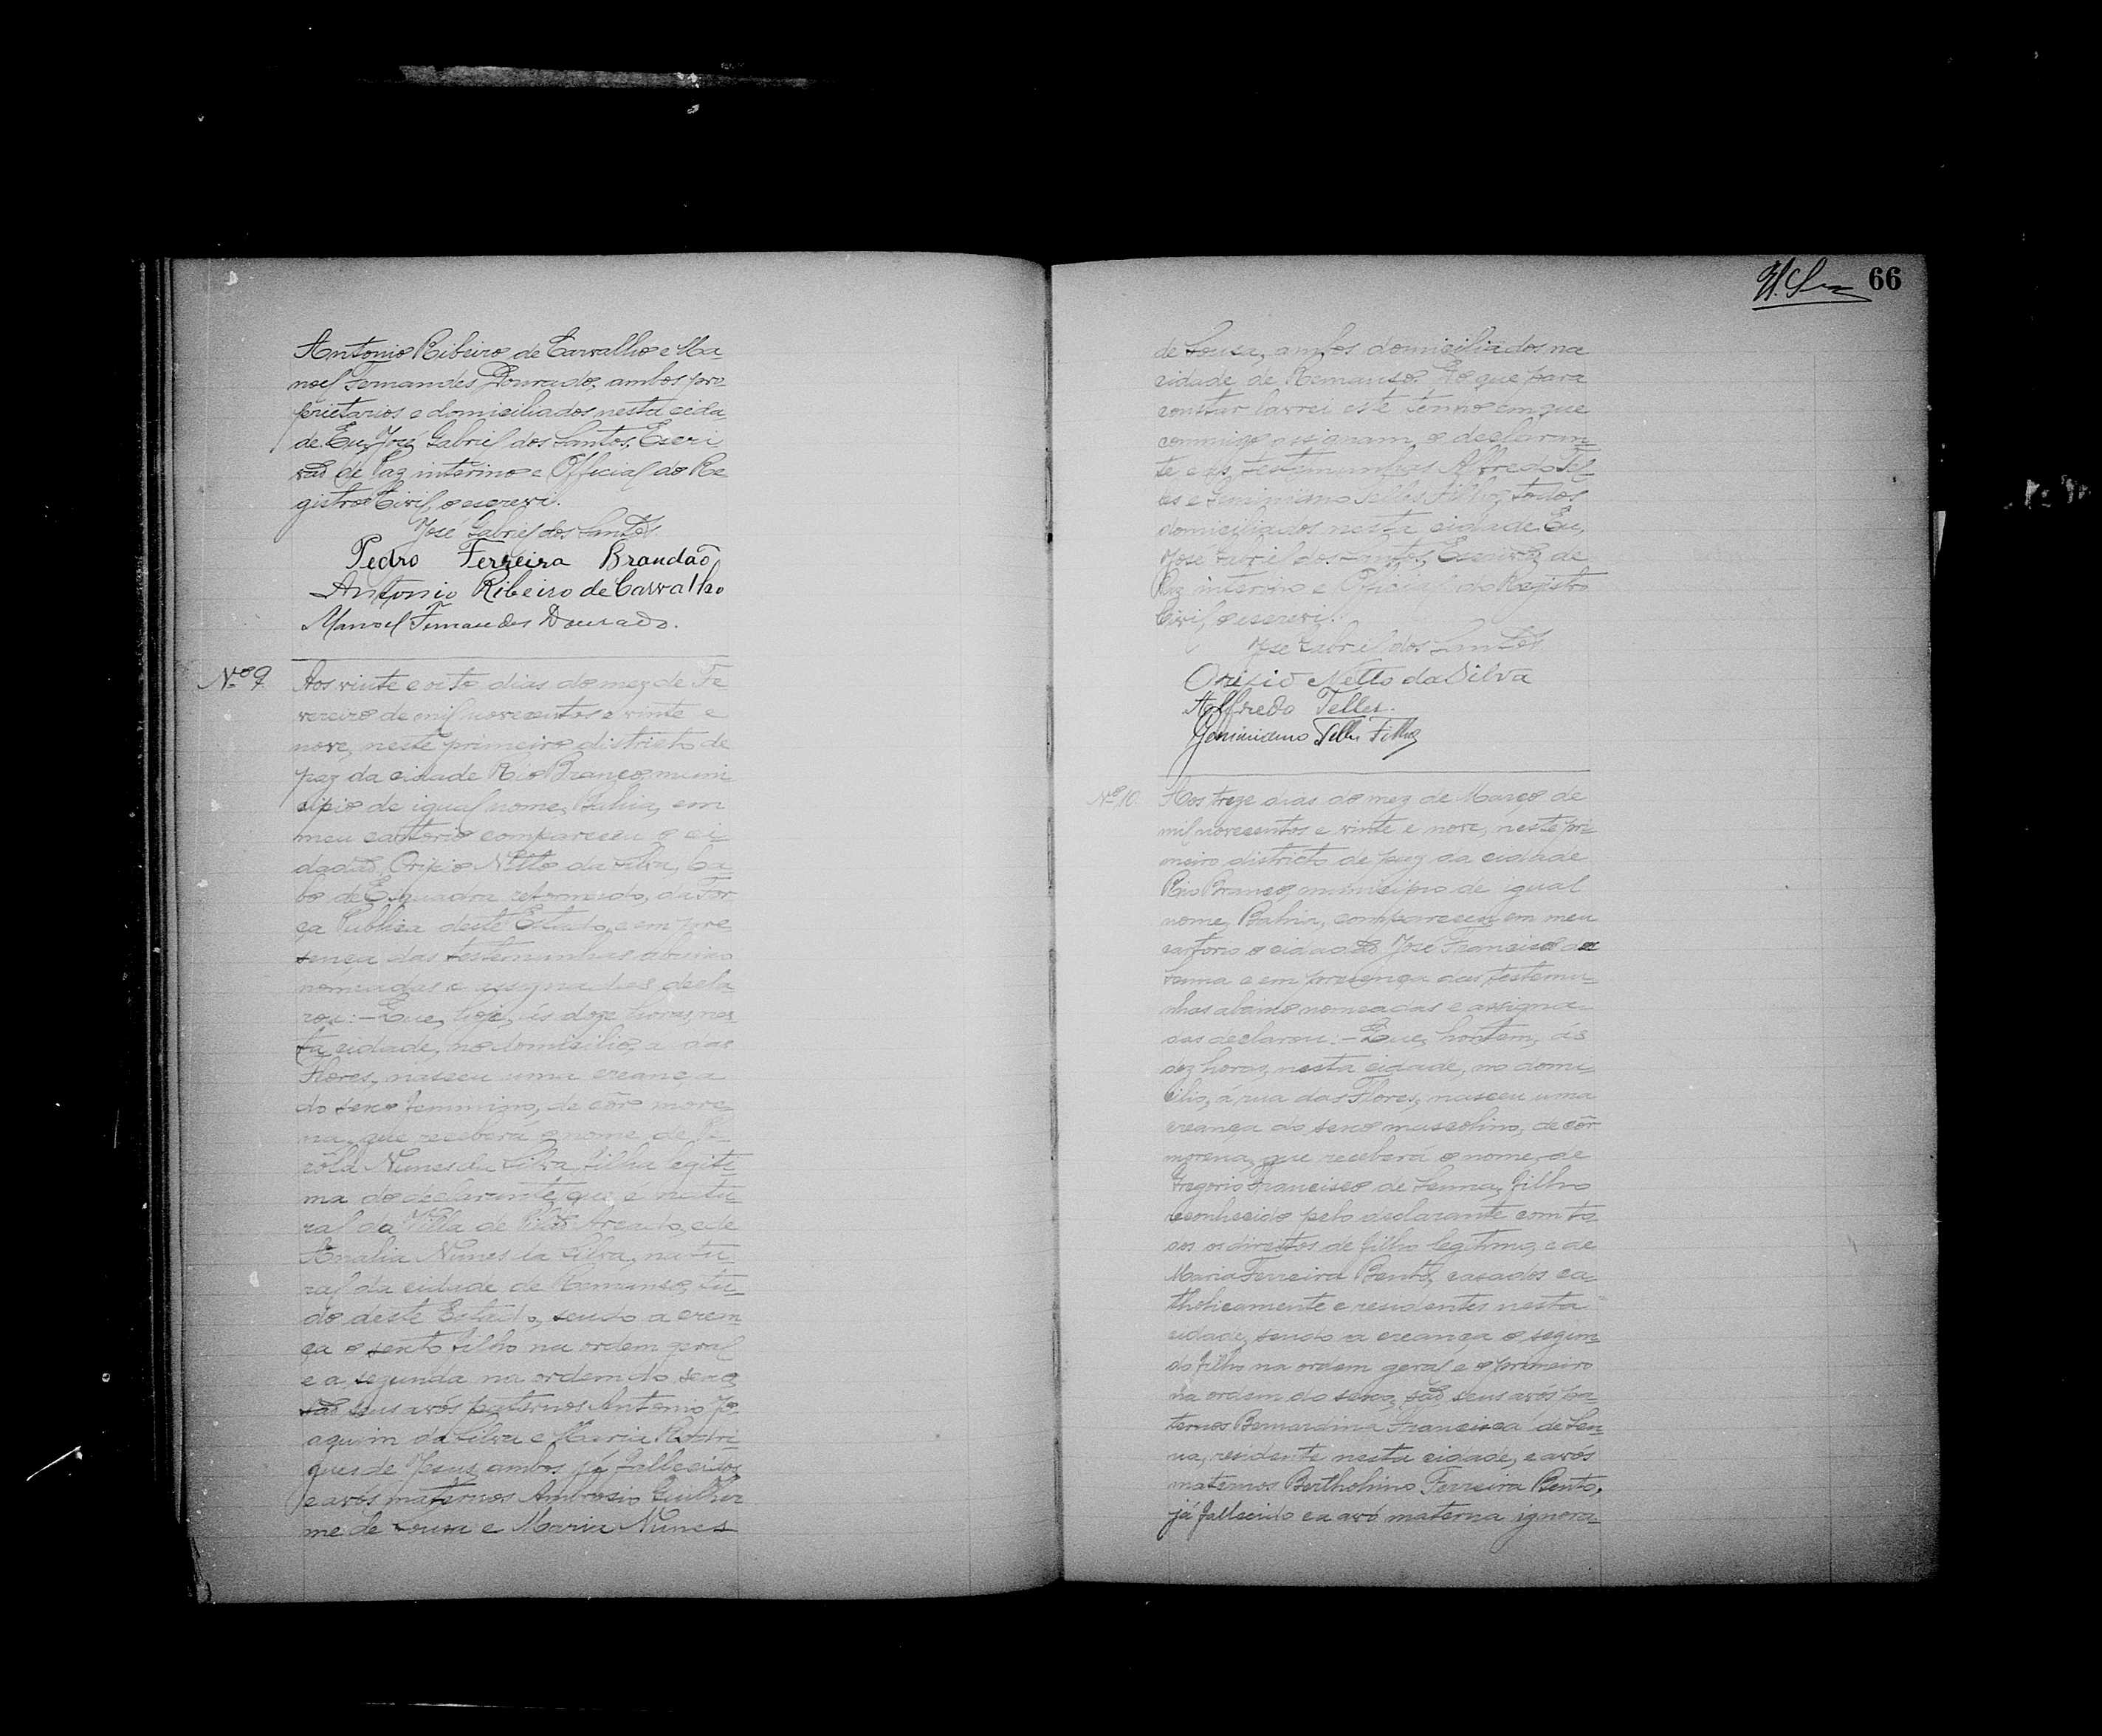 Antonio Ribeiro de Carvalho e Ma
noel Fernandes Dourado, ambos pro-
prietarios e domiciliados nesta cida
de. Eu, José Gabriel dos Santos, Escri
vão de Paz interino e Official do Re
gistro Civil, o escrevi.
José Gabriel dos Santos
Pedro Ferreira Brandão
Antonio Ribeiro de Carvalho
Manoel Fernandes Dourado.
Nº 9. Aos vinte e oito dias do mez de Fe
vereiro de mil novecentos e vinte e
nove, neste primeiro districto de
paz da cidade Rio Branco, muni
cipio de igual nome, Bahia, em
meu cartorio compareceu o ci-
dadão Netto da Silva, Ca
bo de Esquadra reformado, da For
ça Publica deste Estado, e em pre
sença das testemunhas abaixo
nomeadas e assignadas decla-
rou:- Que, hoje, ás doze horas, nes
ta cidade, no domicilio, a das
Flores, nasceu uma creança
do sexo feminino, de côr more-
na, que receberá o nome de
Nunes da Silva, filha legiti-
ma do declarante, que é natu
ral da Villa de Pilão Arcado, e de
Amalia Nunes da Silva, natu-
ral da cidade de Remanso, tu-
do deste Estado, sendo a crean-
ça o sexto filho na ordem geral
e a segunda na ordem do sexo,
são seus avós paternos Antonio Jo-
aquim da Silva e Maria Rodri-
gues de Jesus, ambos já fallecidos,
e avós maternos Ambrosio Guilher
me de Souza e Maria Nunes
66
de Souza, ambos domiciliados na
cidade de Remanso. Do que para
constar lavrei este termo em que
commigo assignam, o declaran-
te e as testemunhas Alfredo Tel
es e Geminiano Telles Filho, todos
domiciliados nesta cidade. Eu,
José Gabriel dos Santos, Escrivão de
Paz interino e Official do Registro
Civil, o escrevi.
José Gabriel dos Santos
Netto da Silva
Alfredo Telles.
Geminiano Telles Filho
Nº 10. Aos treze dias do mez de Março de
mil novecentos e vinte e nove, neste pri-
meiro districto de paz da cidade
Rio Branco, municipio de igual
nome, Bahia, compareceu em meu
cartorio o cidadão José Francisco de
Senna e em presença das testemu-
nhas abaixo nomeadas e assigna-
das declarou:- Que, hontem, ás
dez horas, nesta cidade, no domi-
cilio, á rua das Flores, nasceu uma
creança do sexo masculino, de côr
morena, que receberá o nome de
Gregorio Francisco de Senna, filho
reconhecido pelo declarante com to-
dos os direitos de filho legitimo, e de
Maria Ferreira Bento, casados ca-
tholicamente e residentes nesta
cidade, sendo a creança o segun-
do filho na ordem geral e o primeiro
na ordem do sexo, são seus avós pa-
ternos Bernardina Francisca de Sen-
na, residente nesta cidade, e avós
maternos Bertholino Ferreira Bento,
já fallecido e a avó materna ignora-